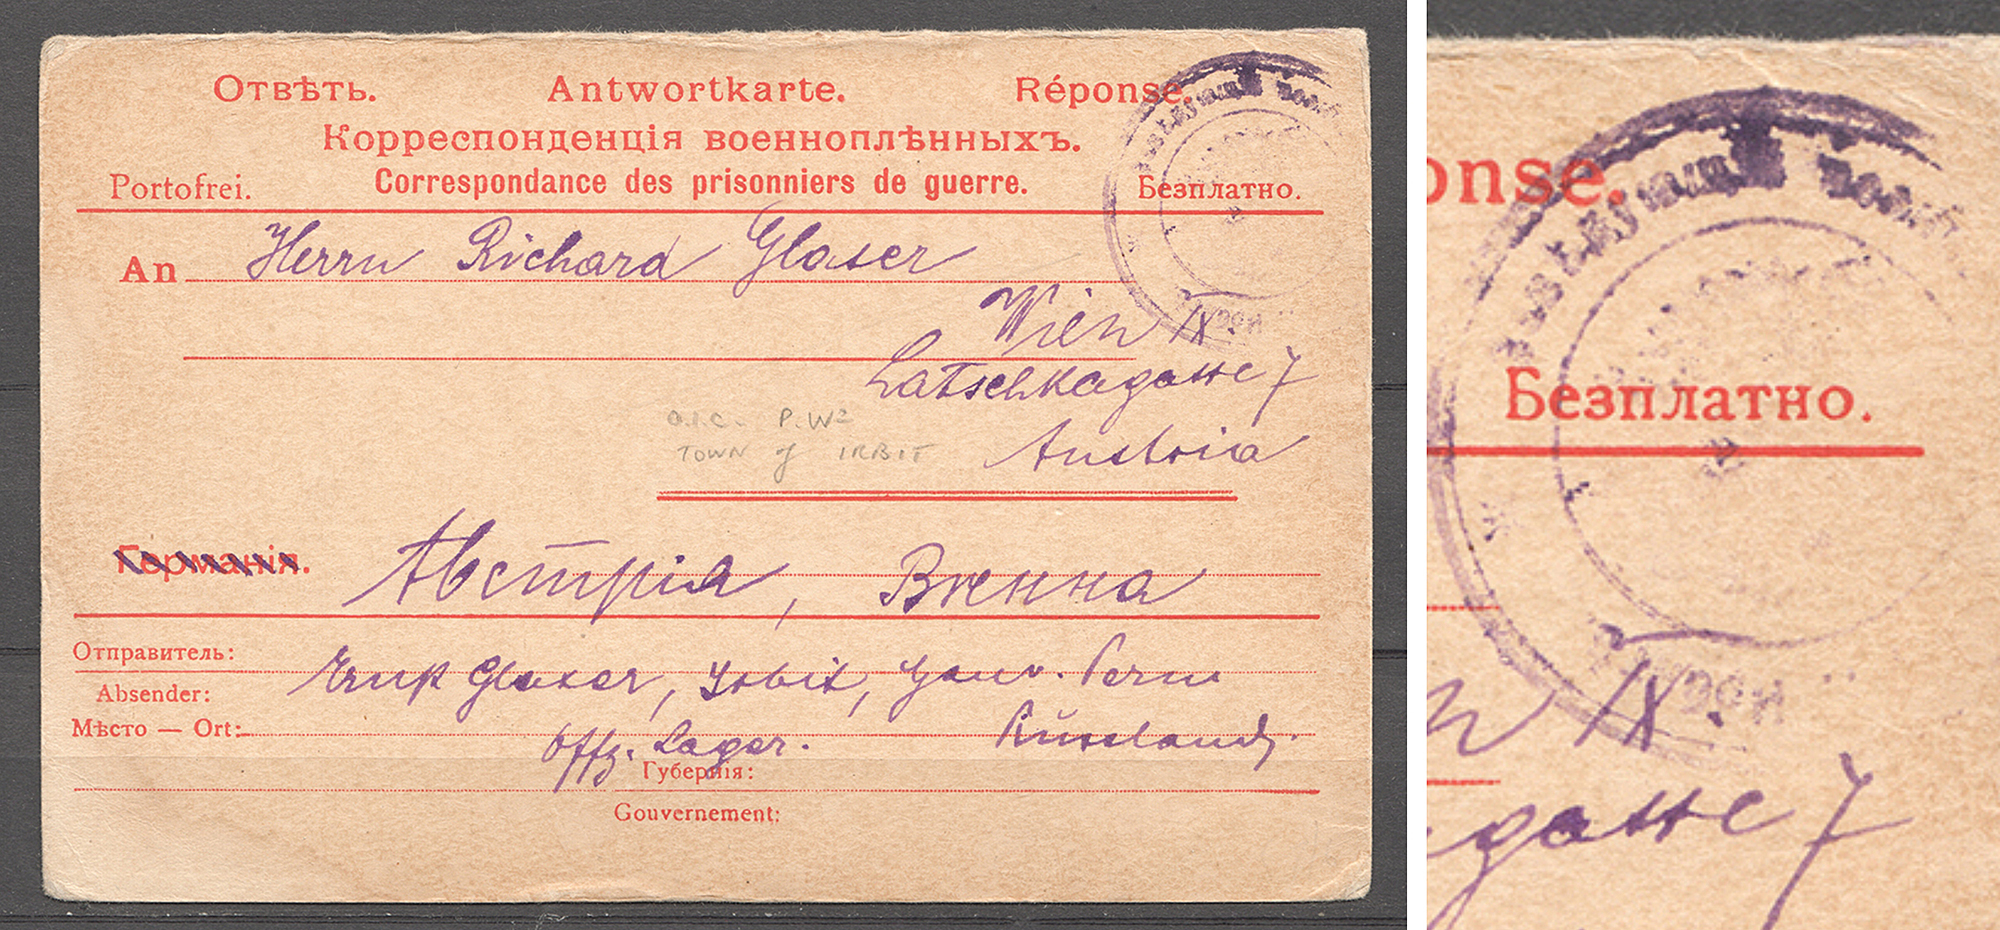 Отвѣтъ. Antwortkarte. Réponse.
Корреспонденція военноплѣнныхъ.
Portofrei. Correspondance des prisonniers de guerre. Безплатно.
An Herrn Richard Glaser
Wien IX.
Latschkagasse 7
O.I.C. P.W²
TOWN of IRBIT
Austria
Германія. Австрія, Віенна
Отправитель:
Absender: Glaser, Irbit, Gouv. Perm
Мѣсто — Ort: Offz. Lager. Russland.
Губернія:
Gouvernement:
завѣдующій
onse.
Безплатно.
n IX.
gasse 7